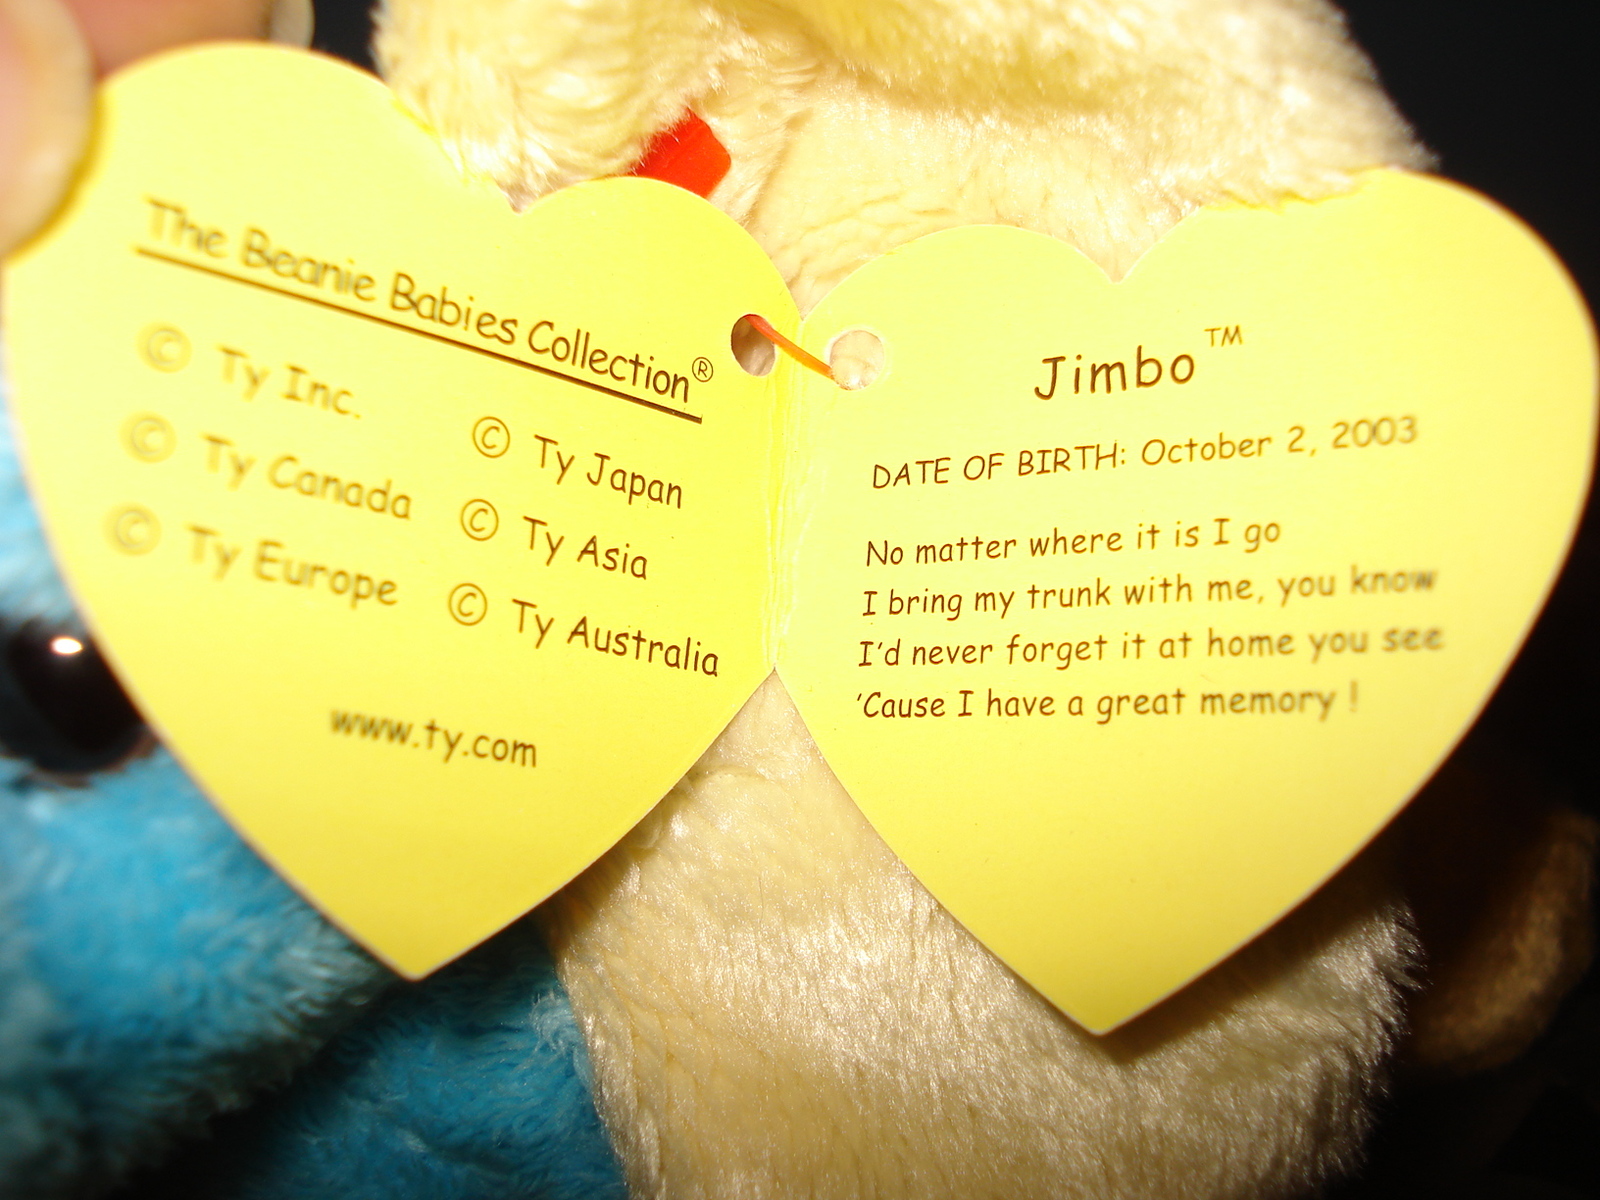 The Beanie Babies Collection®
© Ty Inc.
© Ty Canada
© Ty Europe
© Ty Japan
© Ty Asia
© Ty Australia
www.ty.com
Jimbo™
DATE OF BIRTH: October 2, 2003
No matter where it is I go
I bring my trunk with me, you know
I'd never forget it at home you see
'Cause I have a great memory !